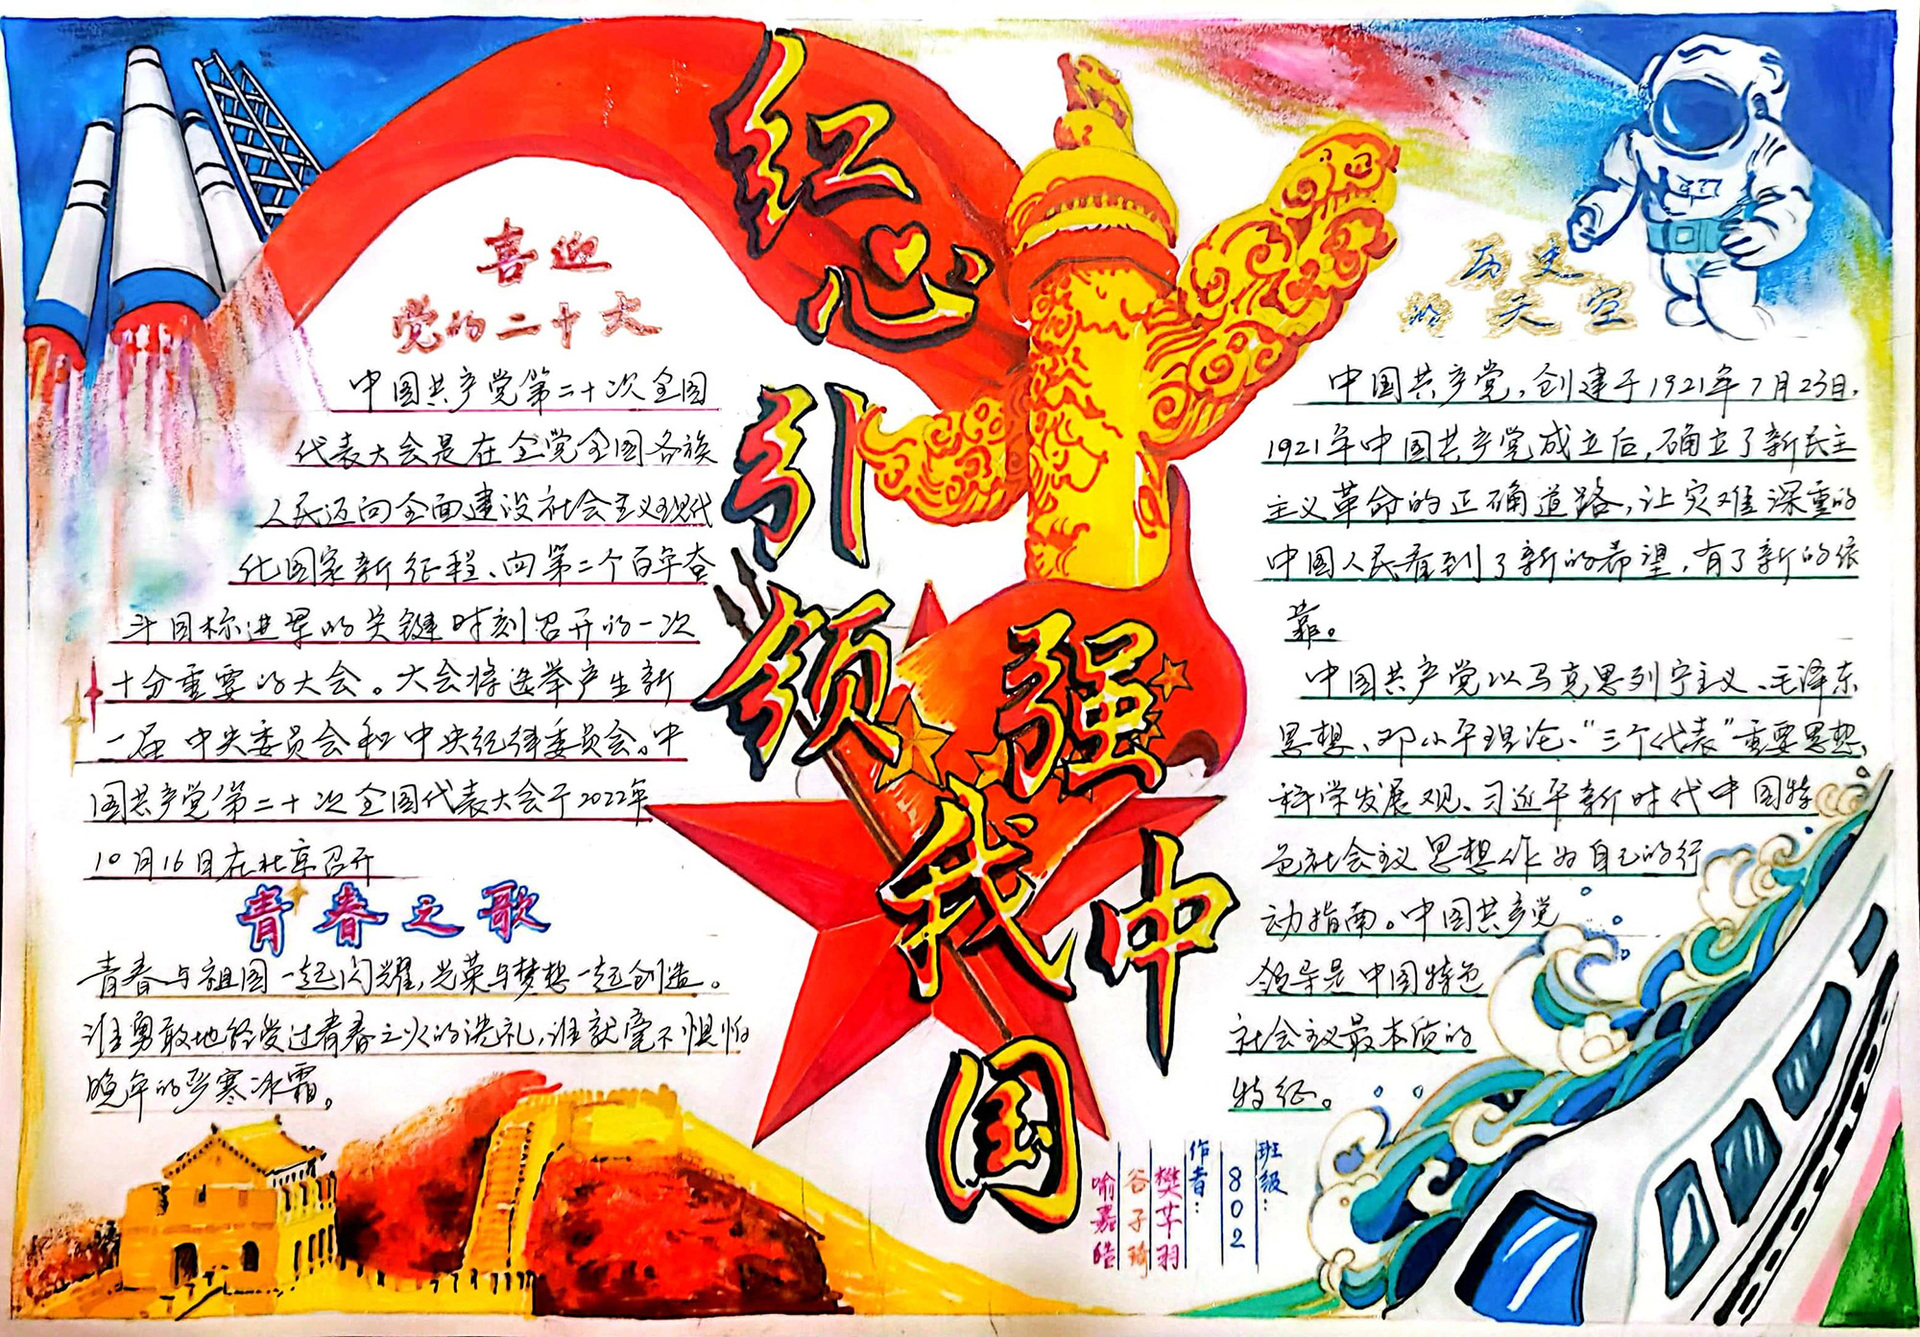 红心
引领
强
我中
国
喜迎
党的二十大
中国共产党第二十次全国
代表大会是在全党全国各族
人民迈向全面建设社会主义现代
化国家新征程、向第二个百年奋
斗目标进军的关键时刻召开的一次
十分重要的大会。大会将选举产生新
一届中央委员会和中央纪律委员会。中
国共产党第二十次全国代表大会于2022年
10月16日在北京召开
青春之歌
青春与祖国一起闪耀,光荣与梦想一起创造。
谁勇敢地经受过青春之火的洗礼,谁就毫不惧怕
晚年的严寒冰霜。
历史
的天空
中国共产党,创建于1921年7月23日,
1921年中国共产党成立后,确立了新民主
主义革命的正确道路,让灾难深重的
中国人民看到了新的希望,有了新的依
靠。
中国共产党以马克思列宁主义、毛泽东
思想、邓小平理论、“三个代表”重要思想、
科学发展观、习近平新时代中国特
色社会主义思想作为自己的行
动指南。中国共产党
领导是中国特色
社会主义最本质的
特征。
班级:
802
作者:
樊芊羽
谷子琦
喻嘉皓